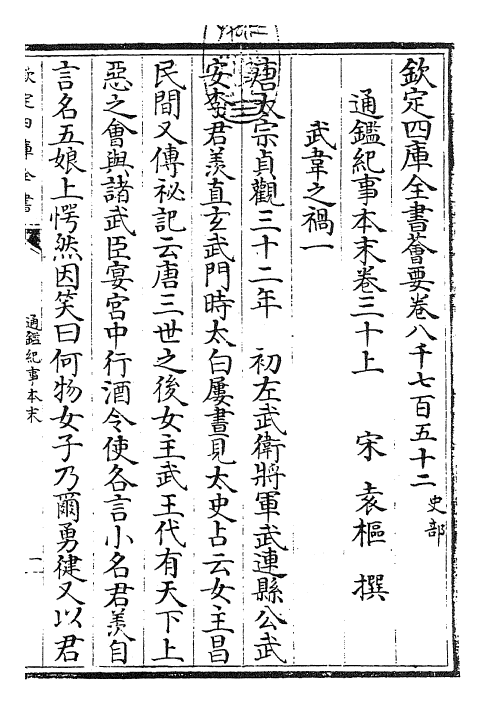 欽定四庫全書薈要卷八千七百五十二 史部
通鑑紀事本末卷三十上 宋 袁樞 撰
武韋之禍一
唐太宗貞觀三十二年 初左武衛將軍武連縣公武
安李君羨直玄武門時太白屢晝見太史占云女主昌
民間又傳祕記云唐三世之後女主武王代有天下上
惡之會與諸武臣宴宮中行酒令使各言小名君羨自
言名五娘上愕然因笑曰何物女子乃爾勇健又以君
欽定四庫全書
通鑑紀事本末
一